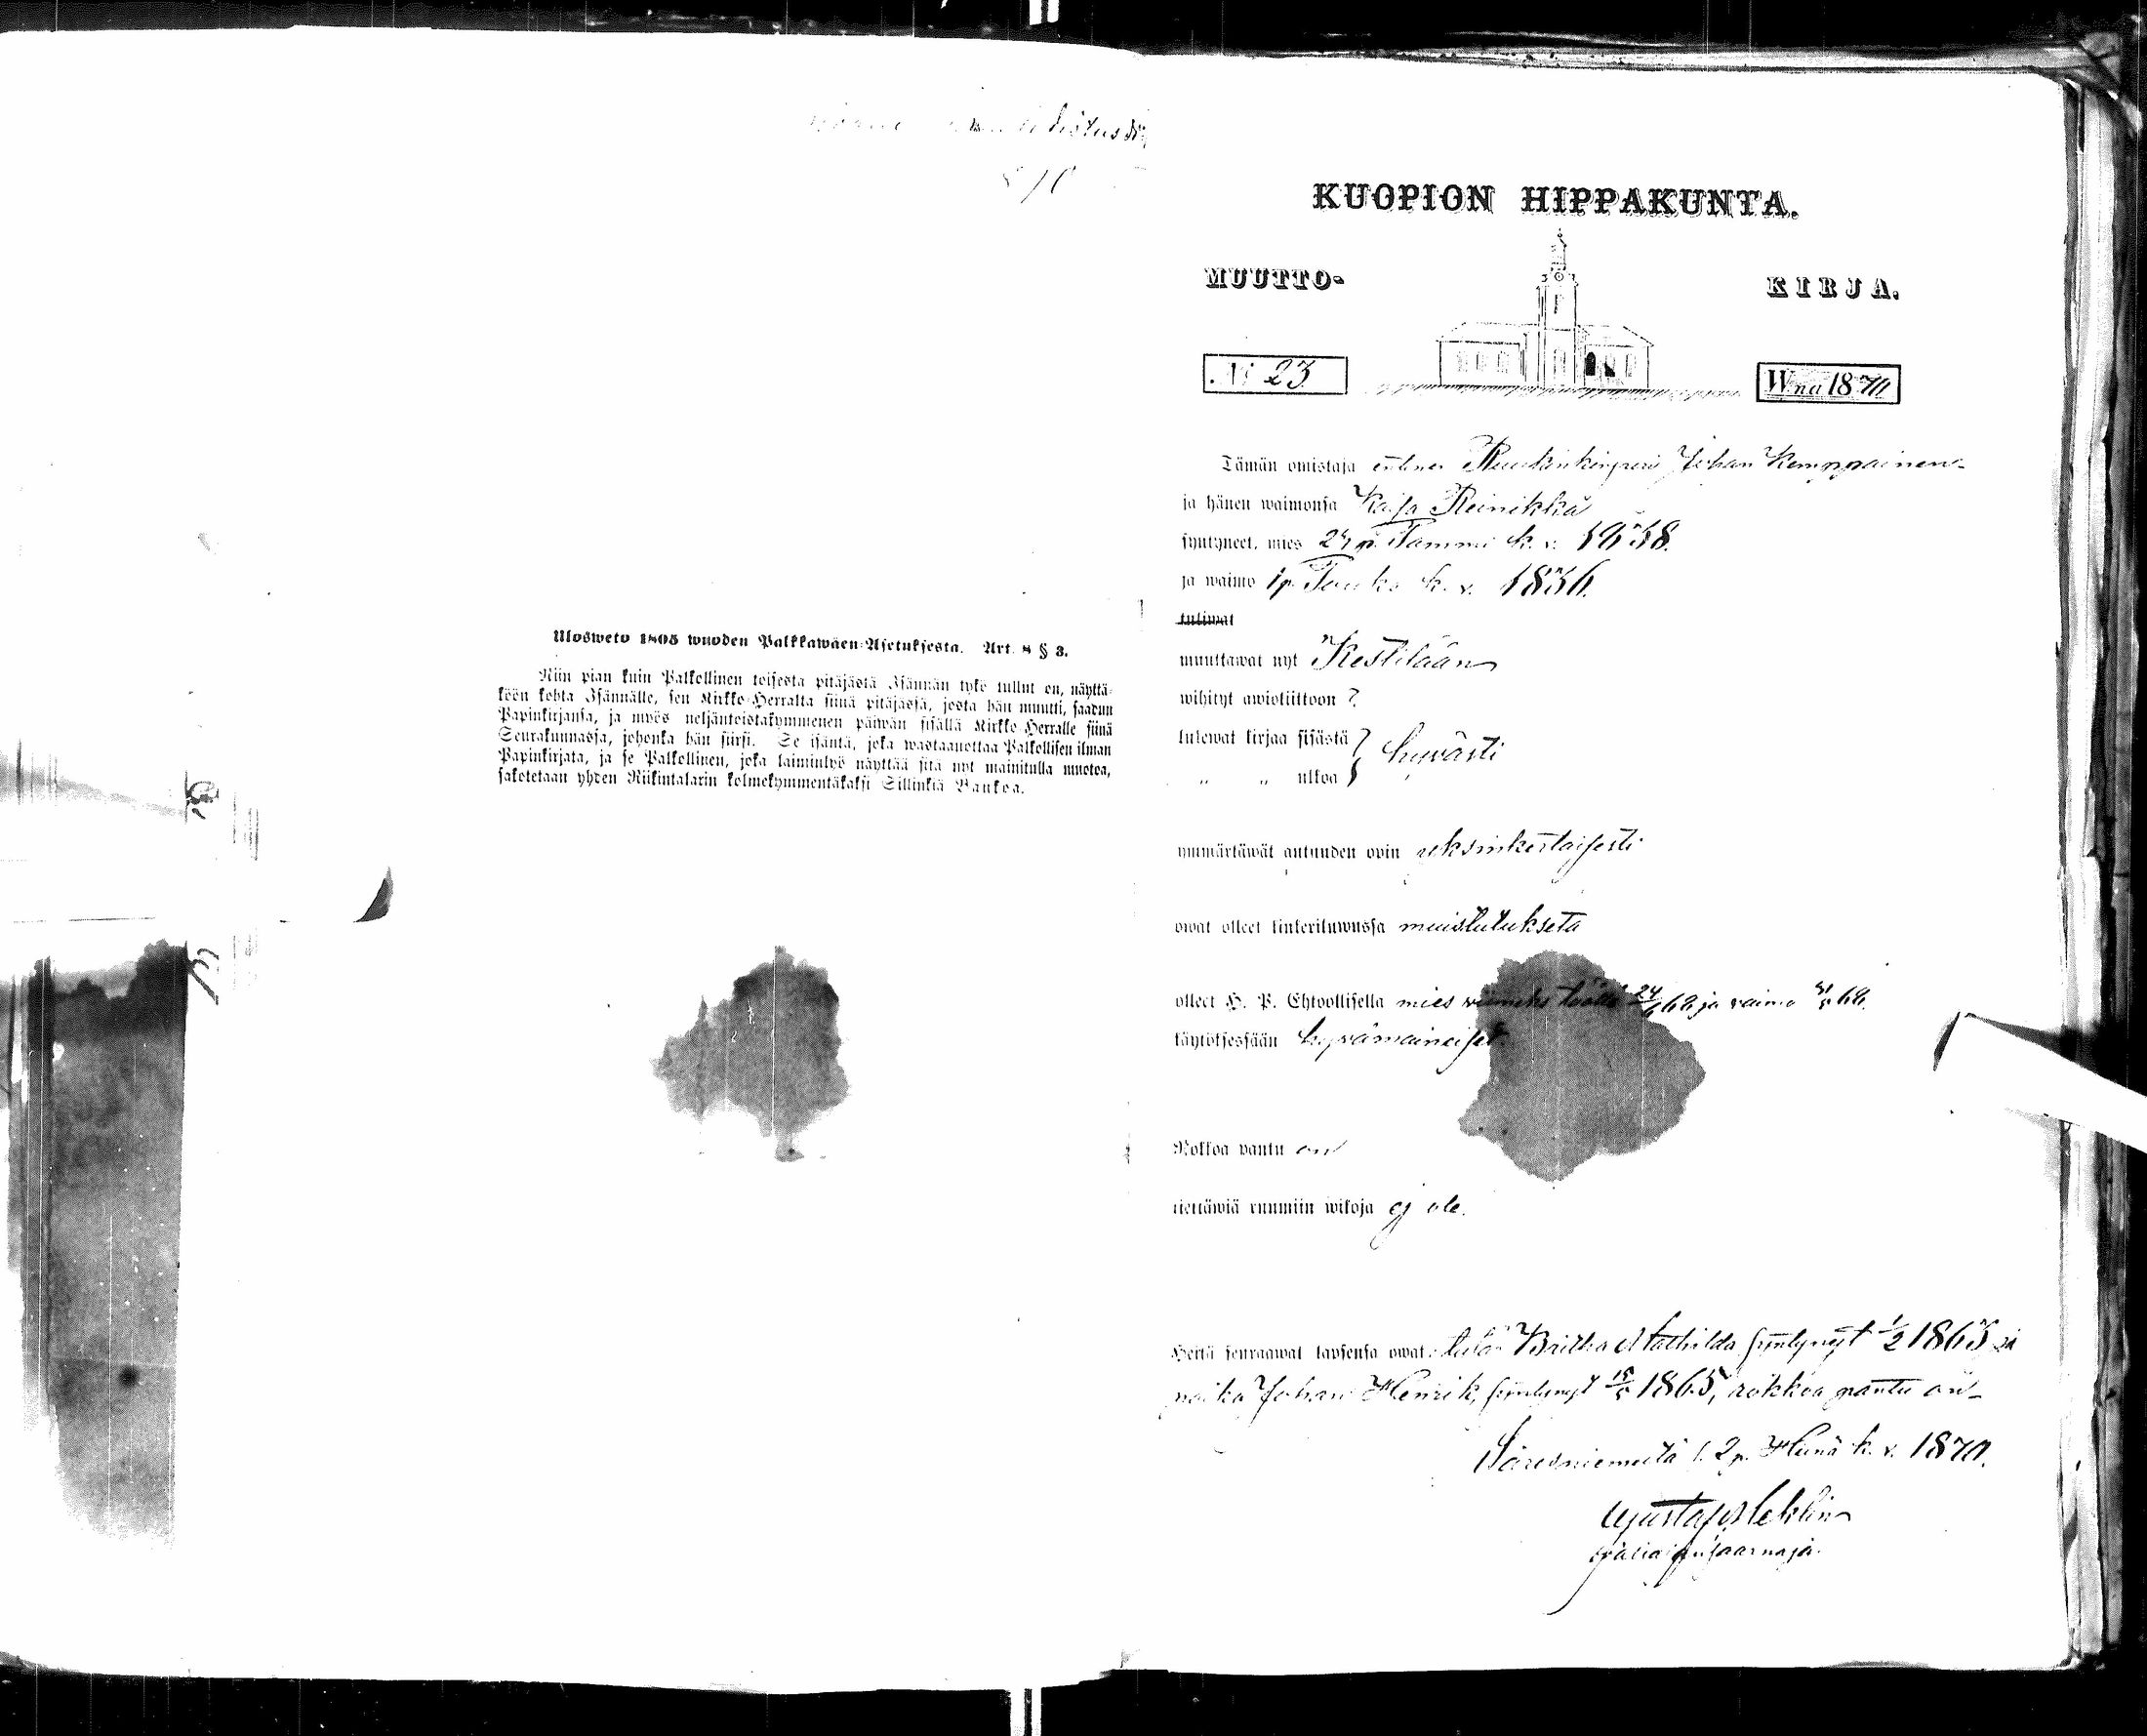 Ulosweto 1805 wuoden Palkkawäen-Asetuksesta. Art. 8 § 3.
Niin pian kuin Palkollinen toisesta pitäjästä Isännän tykö tullut on, näyttä-
köön kohta Isännälle, sen Kirkko-Herralta siinä pitäjässä, josta hän muutti, saadun
Papinkirjansa, ja myös neljäntoistakymmenen päiwän sisällä Kirkko-Herralle siinä
Seurakunnassa, johonka hän siirsi. Se isäntä, joka wastaanottaa Palkollisen ilman
Papinkirjata, ja se Palkollinen, joka laiminlyö näyttää sitä nyt mainitulla muotoa,
sakotetaan yhden Riikintalarin kolmekymmentäkaksi Sillinkiä Bankoa.
KUOPION HIPPAKUNTA.
MUUTTO- KIRJA.
№ 23
W:na 1870
Tämän omistaja Johan Kemppainen
ja hänen waimonsa Kaisa Reinikka
syntyneet, mies 24 p. Tammi k. v. 1838.
ja waimo 1 p. Touko k. v. 1836.
tuliwat
muuttawat nyt Kestilään
wihityt awioliittoon ?
lukewat kirjaa sisästä } hywästi
„ „ ulkoa
ymmärtäwät autuuden opin yksinkertaisesti
owat olleet kinkeriluwussa muistutukseta
olleet H. P. Ehtoollisella mies wiimeks täällä 24/6 68 ja vaimo 68.
käytöksessään hyvämaineiset
Rokkoa pantu on
tiettäwiä ruumiin wikoja ej ole.
Heitä seuraawat lapsensa owat: Britha Mathilda syntynyt 1/2 1863 ja
poika Johan Henrik, syntynyt 1865, rokkoa pantu on
Säresniemeltä 2 p. Heinä k. v. 1870.
Gustaf
saarnaja.